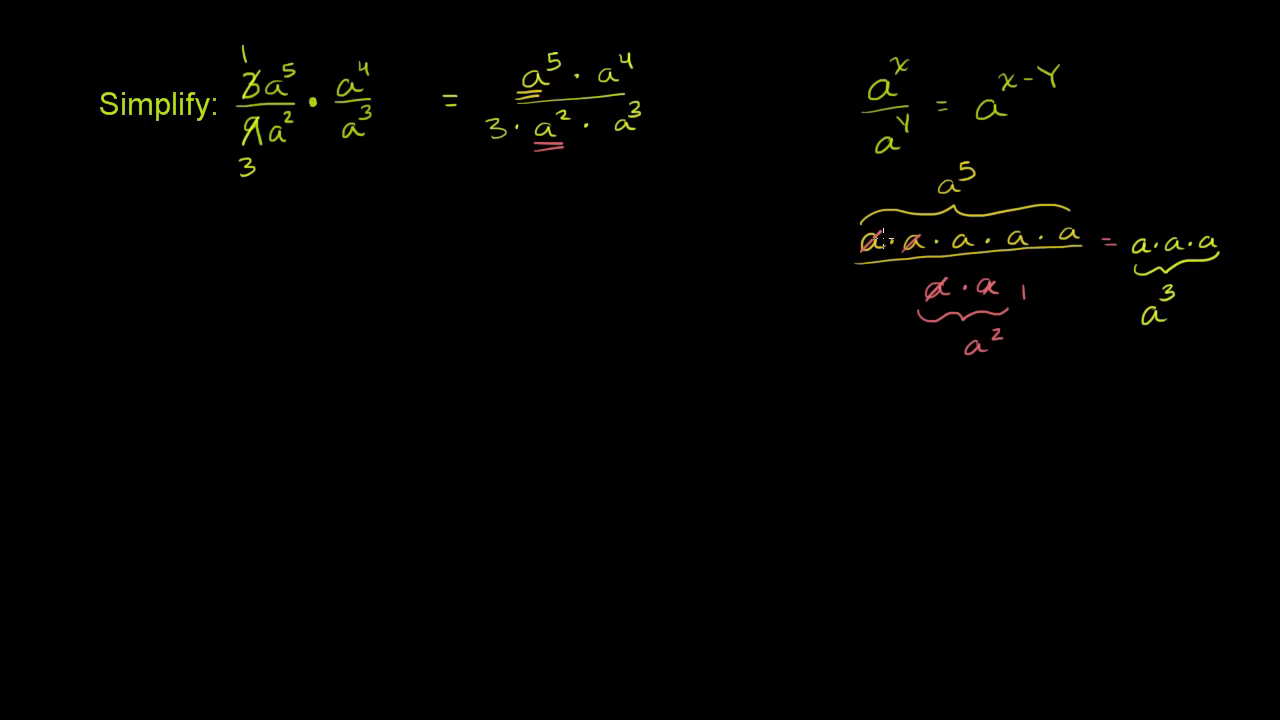 Simplify: 3a⁵/9a² · a⁴/a³ = a⁵ · a⁴ / 3 · a² · a³
1
3
aˣ/aʸ = aˣ⁻ʸ
a⁵
a · a · a · a · a = a · a · a
a · a 1
a³
a²